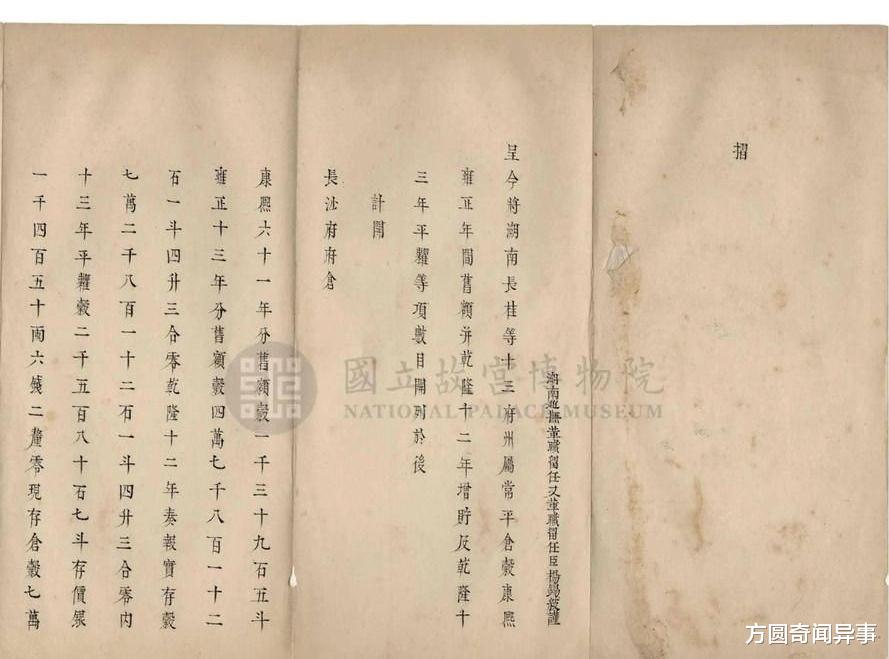 摺
湖南巡撫革職留任又革職留任臣楊錫紱謹
呈今將湖南長桂等十三府州屬常平倉穀康熙
雍正年間舊額併乾隆十二年增貯及乾隆十
三年平糶等項數目開列於後
計開
長沙府府倉
康熙六十一年分舊額穀一千三十九石五斗
雍正十三年分舊額穀四萬七千八百一十二
石一斗四升三合零乾隆十二年奏報實存穀
七萬二千八百一十二石一斗四升三合零內
十三年平糶穀二千五百八十石七斗存價銀
一千四百五十兩六錢二釐零現存倉穀七萬
國立故宮博物院
NATIONAL PALACE MUSEUM
方圆奇闻异事